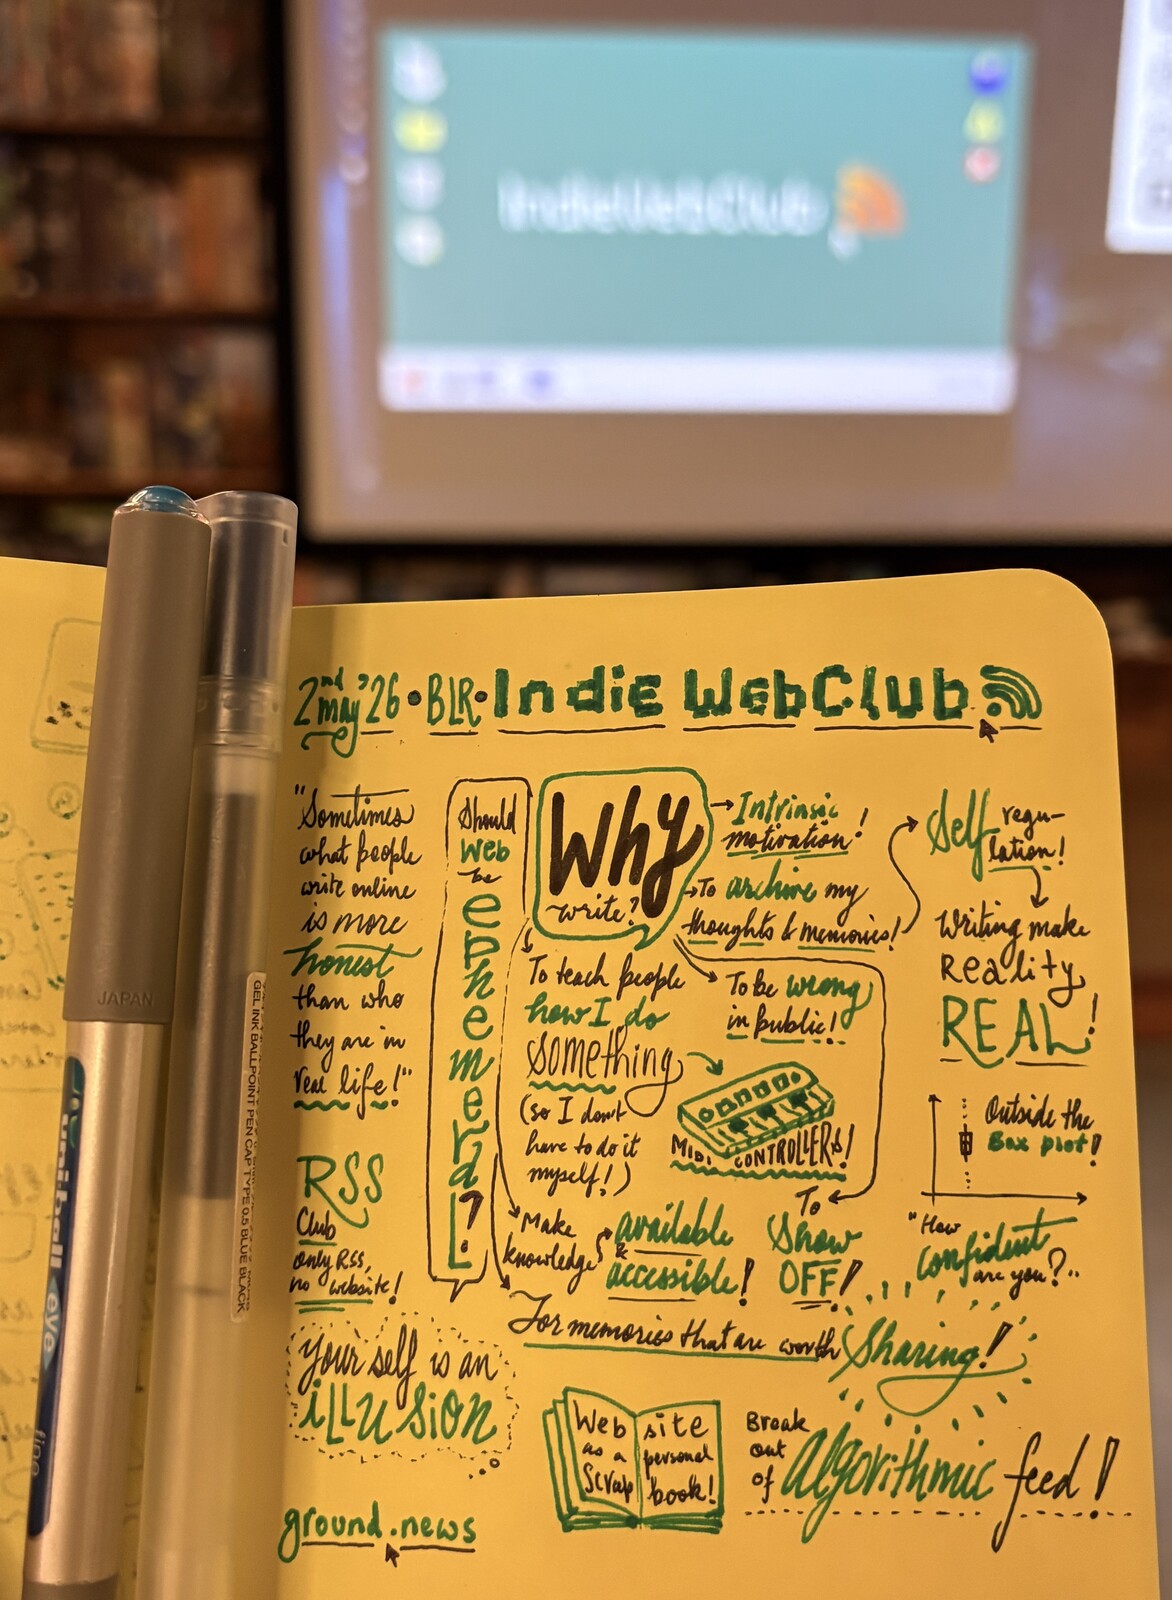 IndieWebClub
2nd may '26 • BLR • Indie WebClub
"Sometimes
what people
write online
is more
honest
than who
they are in
real life!"
RSS
Club
only RSS,
no website!
Your self is an
illusion
ground.news
Should
web
be
ephemeral?
Why
write?
→ Intrinsic
motivation!
→ To archive my
thoughts & memories!
Self regu-
lation!
Writing make
Reality
REAL!
To teach people
how I do
something
(so I don't
have to do it
myself!)
To be wrong
in public!
MIDI CONTROLLERS!
Outside the
Box plot!
Make
knowledge
available
&
accessible!
To
Show
OFF!
"How
confident
are you?"
For memories that are worth Sharing!
Web
as a
Scrap
site
personal
book!
Break
out
of algorithmic feed!
JAPAN
uniball eye
fine
GEL INK BALLPOINT PEN CAP TYPE 0.5 BLUE BLACK